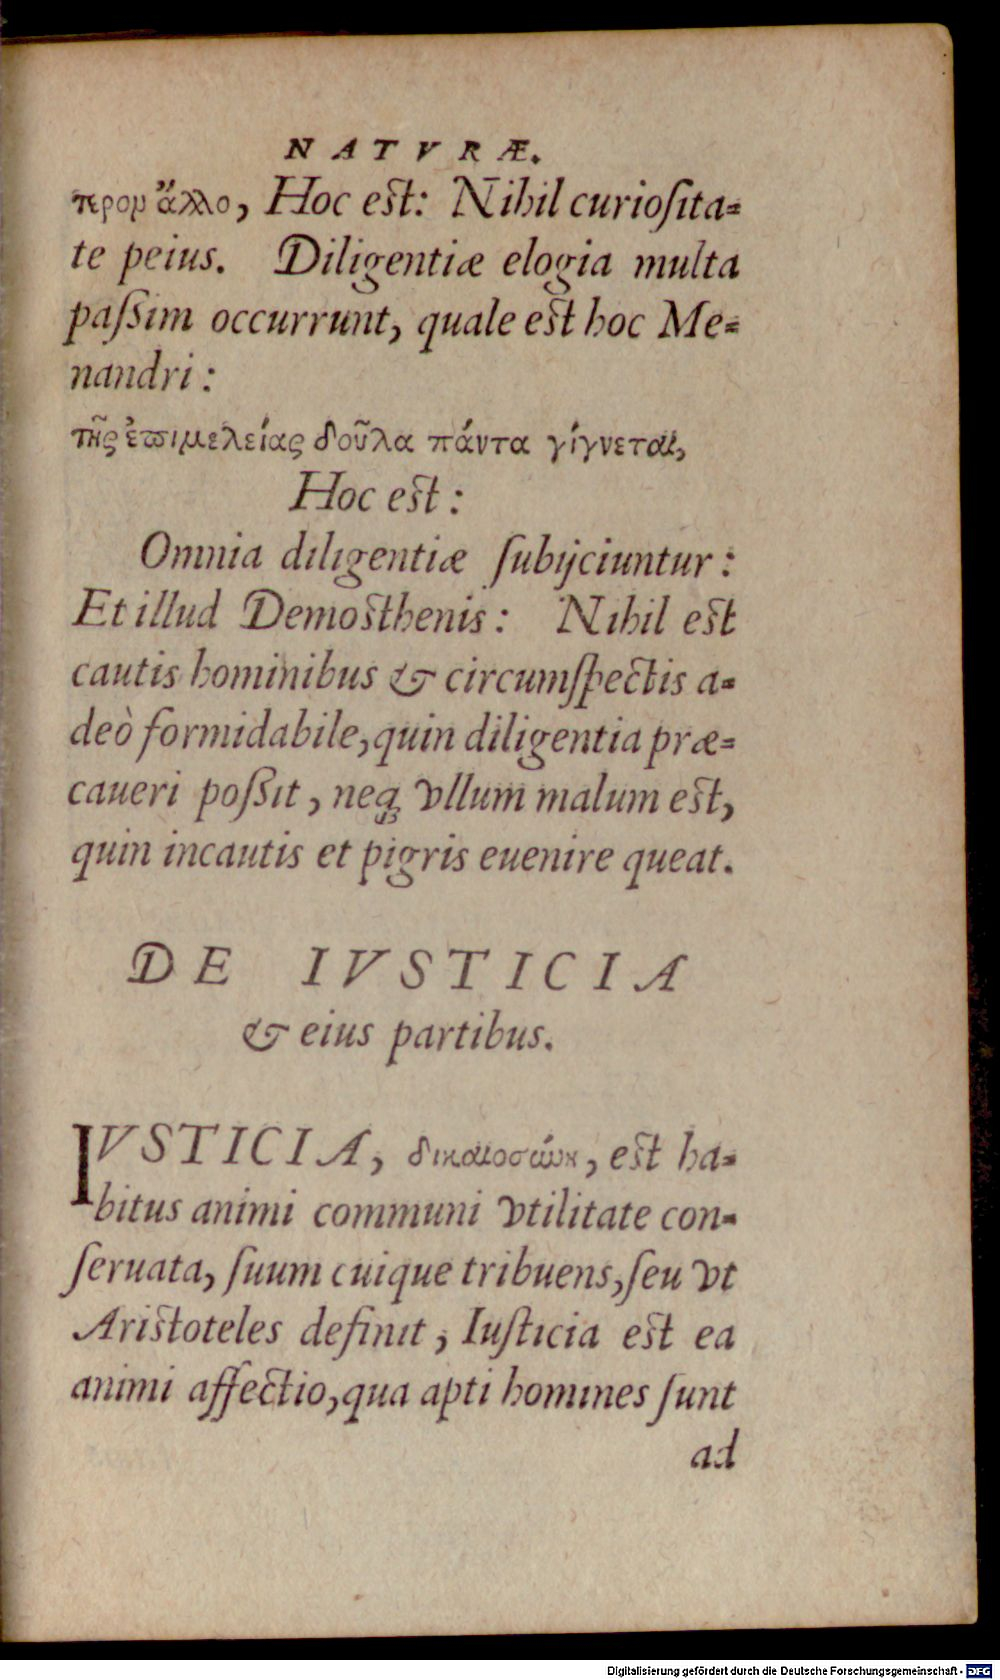 NATVRÆ.
περομ ἄλλο, Hoc est: Nihil curioſita=
te peius. Diligentiæ elogia multa
paſsim occurrunt, quale est hoc Me=
nandri:
τῆς ἐπιμελείας δοῦλα πάντα γίγνεται,
Hoc est:
Omnia diligentiæ ſubijciuntur:
Et illud Demosthenis: Nihil est
cautis hominibus & circumſpectis a=
deò formidabile, quin diligentia præ=
caueri poſsit, neq́ꝫ vllum malum est,
quin incautis et pigris euenire queat.
DE IVSTICIA
& eius partibus.
IVSTICIA, δικαιοσύνη, est ha=
bitus animi communi vtilitate con=
ſeruata, ſuum cuique tribuens, ſeu vt
Aristoteles definit, Iuſticia est ea
animi affectio, qua apti homines ſunt
ad
Digitalisierung gefördert durch die Deutsche Forschungsgemeinschaft - DFG